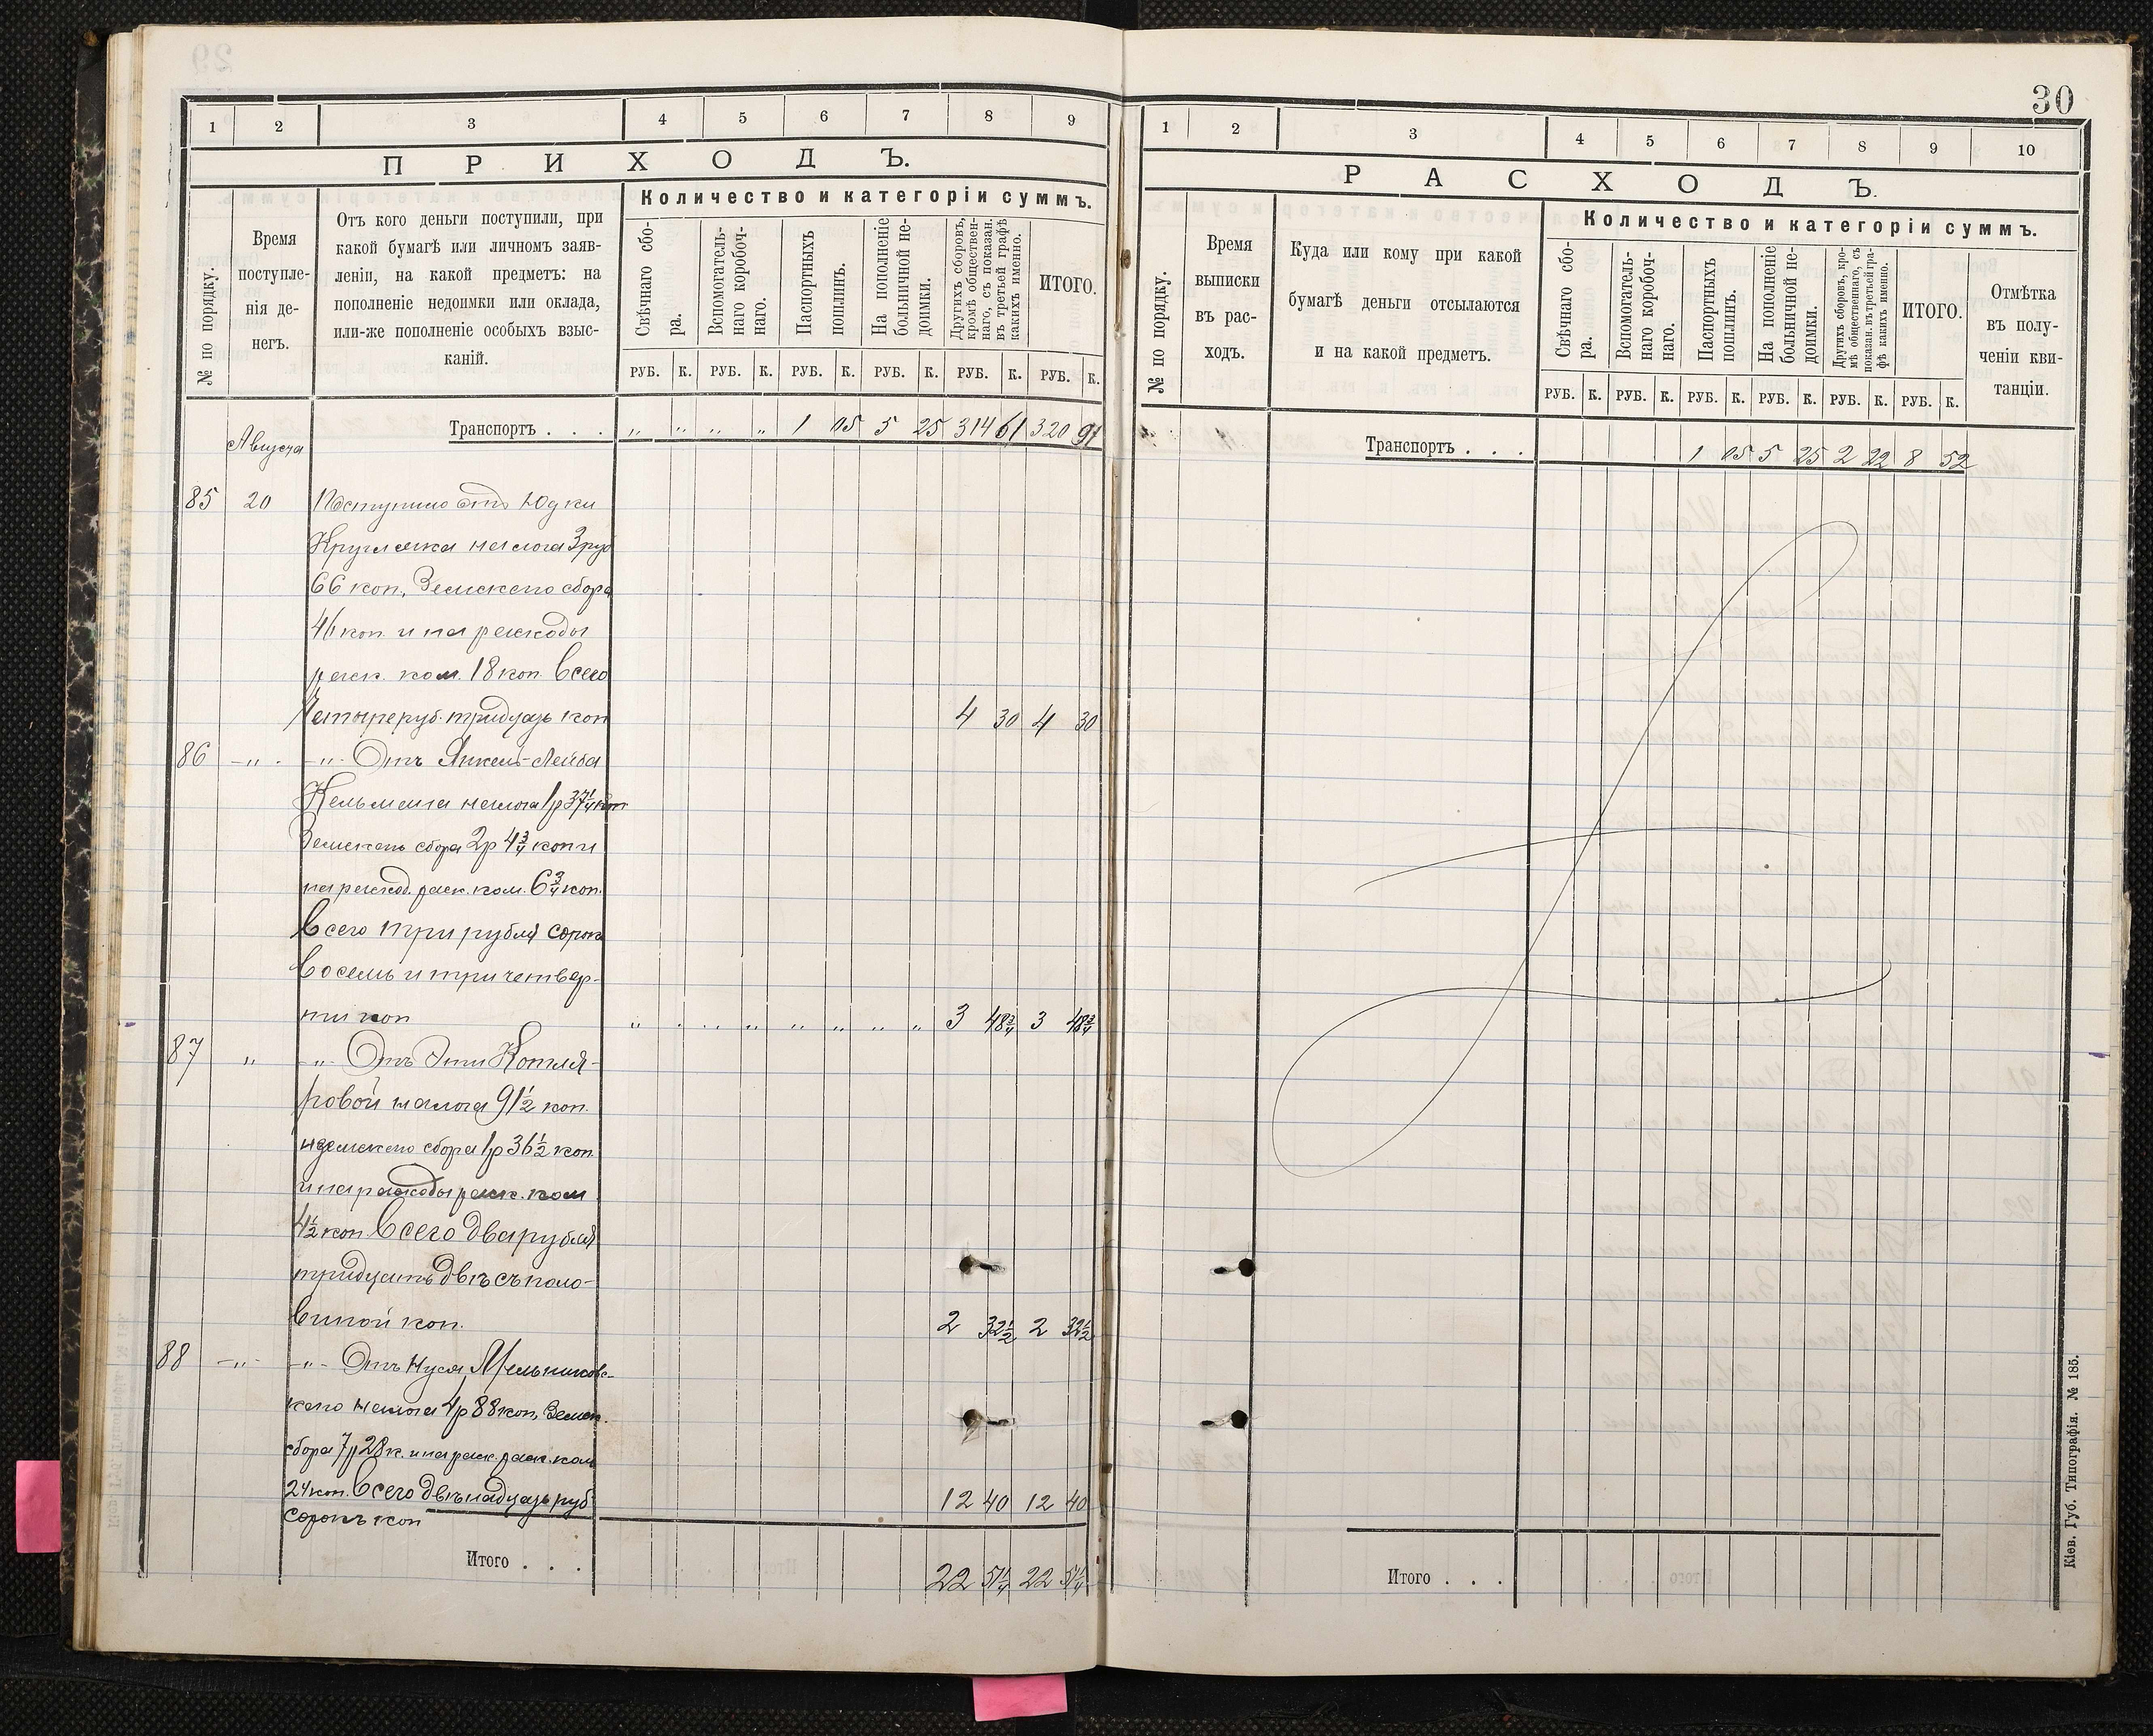 30
1 2 3 4 5 6 7 8 9
ПРИХОДЪ.
№ по порядку.
Время поступле-
нія де-
негъ.
Отъ кого деньги поступили, при
какой бумагѣ или личномъ заяв-
леніи, на какой предметъ: на
пополненіе недоимки или оклада,
или-же пополненіе особыхъ взыс-
каній.
Количество и категоріи суммъ.
Свѣчнаго сбо-
ра.
Вспомогатель-
наго коробоч-
наго.
Паспортныхъ
пошлинъ.
На пополненіе
больничной не-
доимки.
Другихъ сборовъ,
кромѣ обществен-
наго, съ показан.
въ третьей графѣ
какихъ именно.
ИТОГО.
РУБ. К. РУБ. К. РУБ. К. РУБ. К. РУБ. К. РУБ. К.
Транспортъ . . . „ „ „ „ 1 05 5 25 314 61 320 91
Августа
85 20 Поступило отъ Юдки
Кругляка налога 3 руб
66 коп., Земскаго сбора
46 коп. и на расходы
раск. ком. 18 коп. Всего
Четыре руб. тридцать коп 4 30 4 30
86 -„- -„- Отъ Янкель-Лейба
Кельмана налога 1р 37 1/4 коп
Земскаго сбора 2р 4 3/4 коп и
на расход. раск. ком. 6 3/4 коп.
Всего три рубля сорокъ
восемь и три четвер-
ти коп „ „ „ „ „ „ „ „ 3 48 3/4 3 48 3/4
87 „ -„- Отъ Эти Котля-
ровой налога 91 1/2 коп.
земскаго сбора 1р 36 1/2 коп
и на расходы раск. ком
4 1/2 коп Всего два рубля
тридцать двѣ съ поло-
виной коп. 2 32 1/2 2 32 1/2
88 -„- -„- Отъ Нуся Мельниковс-
каго налога 4р 88 коп, Земск.
сбора 7р 28 к. и на расх. раск. ком
24 коп. Всего двѣнадцать руб
сорокъ коп 12 40 12 40
Итого . . . 22 51 1/4 22 51 1/4
1 2 3 4 5 6 7 8 9 10
РАСХОДЪ.
№ по порядку.
Время
выписки
въ рас-
ходъ.
Куда или кому при какой
бумагѣ деньги отсылаются
и на какой предметъ.
Количество и категоріи суммъ.
Свѣчнаго сбо-
ра.
Вспомогатель-
наго коробоч-
наго.
Паспортныхъ
пошлинъ.
На пополненіе
больничной не-
доимки.
Другихъ сборовъ, кро-
мѣ общественнаго, съ
показан. въ третьей гра-
фѣ какихъ именно.
ИТОГО.
Отмѣтка
въ полу-
ченіи кви-
танціи.
РУБ. К. РУБ. К. РУБ. К. РУБ. К. РУБ. К. РУБ. К.
Транспортъ . . . 1 05 5 25 2 22 8 52
Итого . . .
Кіев. Губ. Типографія. № 185.